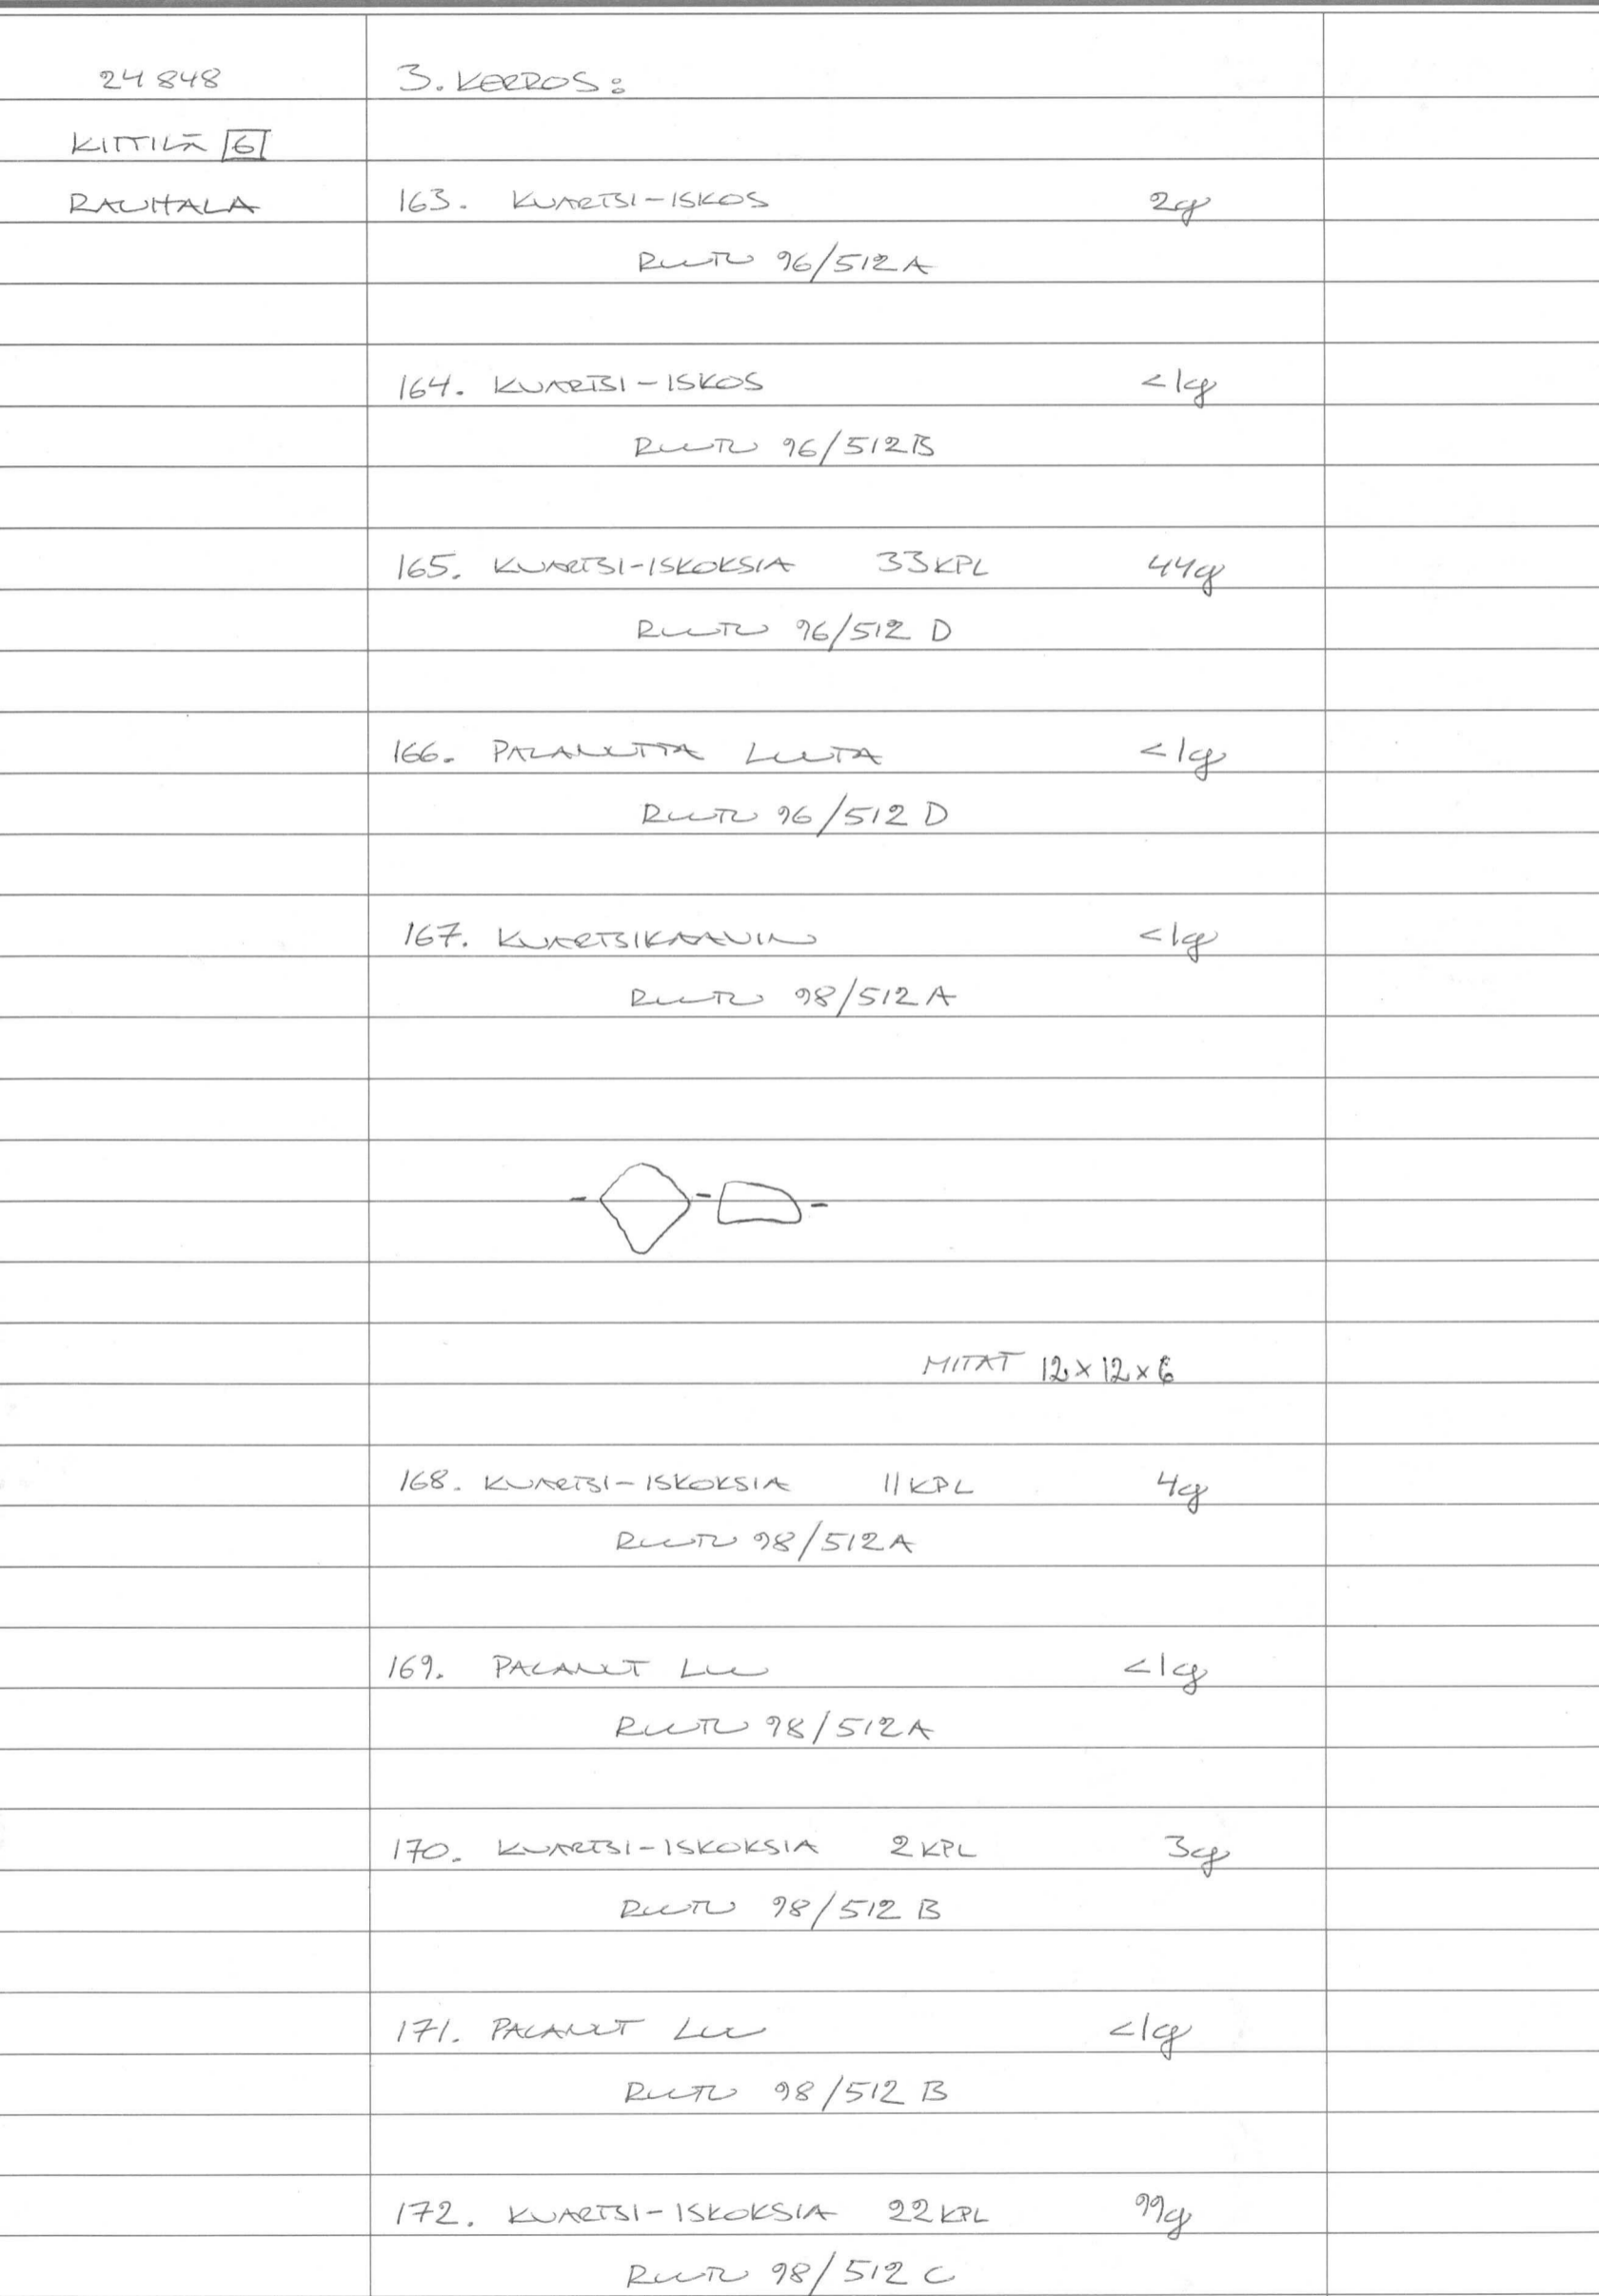 24848
3. KERROS:
KITTILÄ 6
RAUHALA
163. KVARTSI-ISKOS 2g
RUUTU 96/512A
164. KVARTSI-ISKOS <1g
RUUTU 96/512B
165. KVARTSI-ISKOKSIA 33KPL 44g
RUUTU 96/512 D
166. PALANUTTA LUUTA <1g
RUUTU 96/512 D
167. KVARTSIKAAVIN <1g
RUUTU 98/512A
MITAT 12x12x6
168. KVARTSI-ISKOKSIA 11KPL 4g
RUUTU 98/512A
169. PALANUT LUU <1g
RUUTU 98/512A
170. KVARTSI-ISKOKSIA 2KPL 3g
RUUTU 98/512 B
171. PALANUT LUU <1g
RUUTU 98/512 B
172. KVARTSI-ISKOKSIA 22KPL 99g
RUUTU 98/512 C